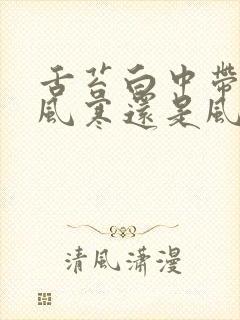 舌苔白中帶
風寒還是風
清風瀟漫